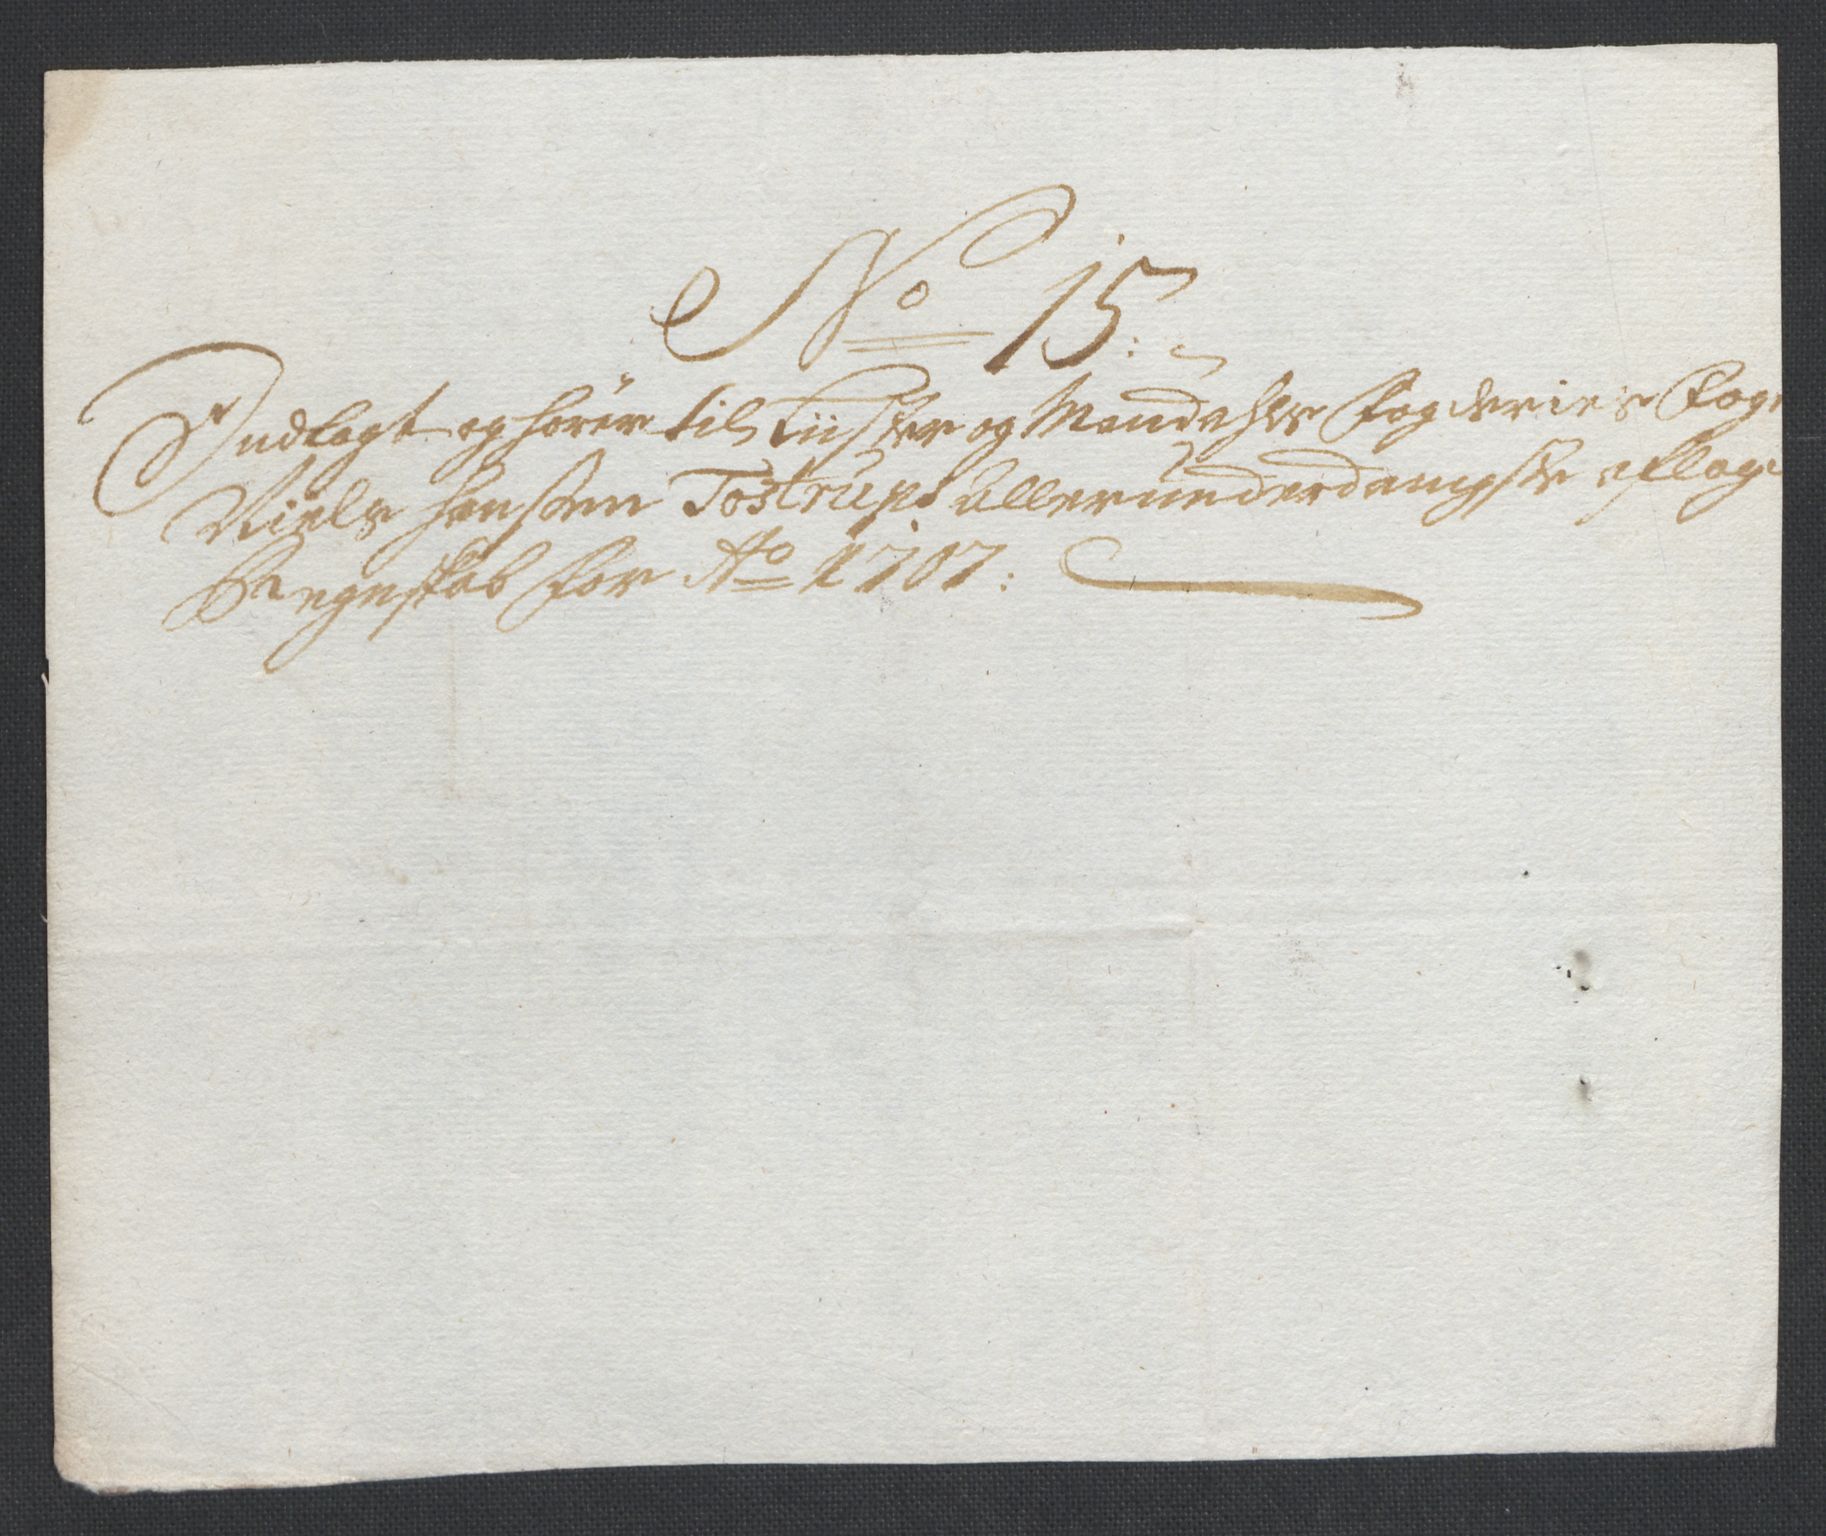 No 15:
Indlagt og hører til Lister og Mandahls Fogderies Fog
Niels Hanssen Tostrups allerunderdanigste aflag
Regnskab for Ao 1707: